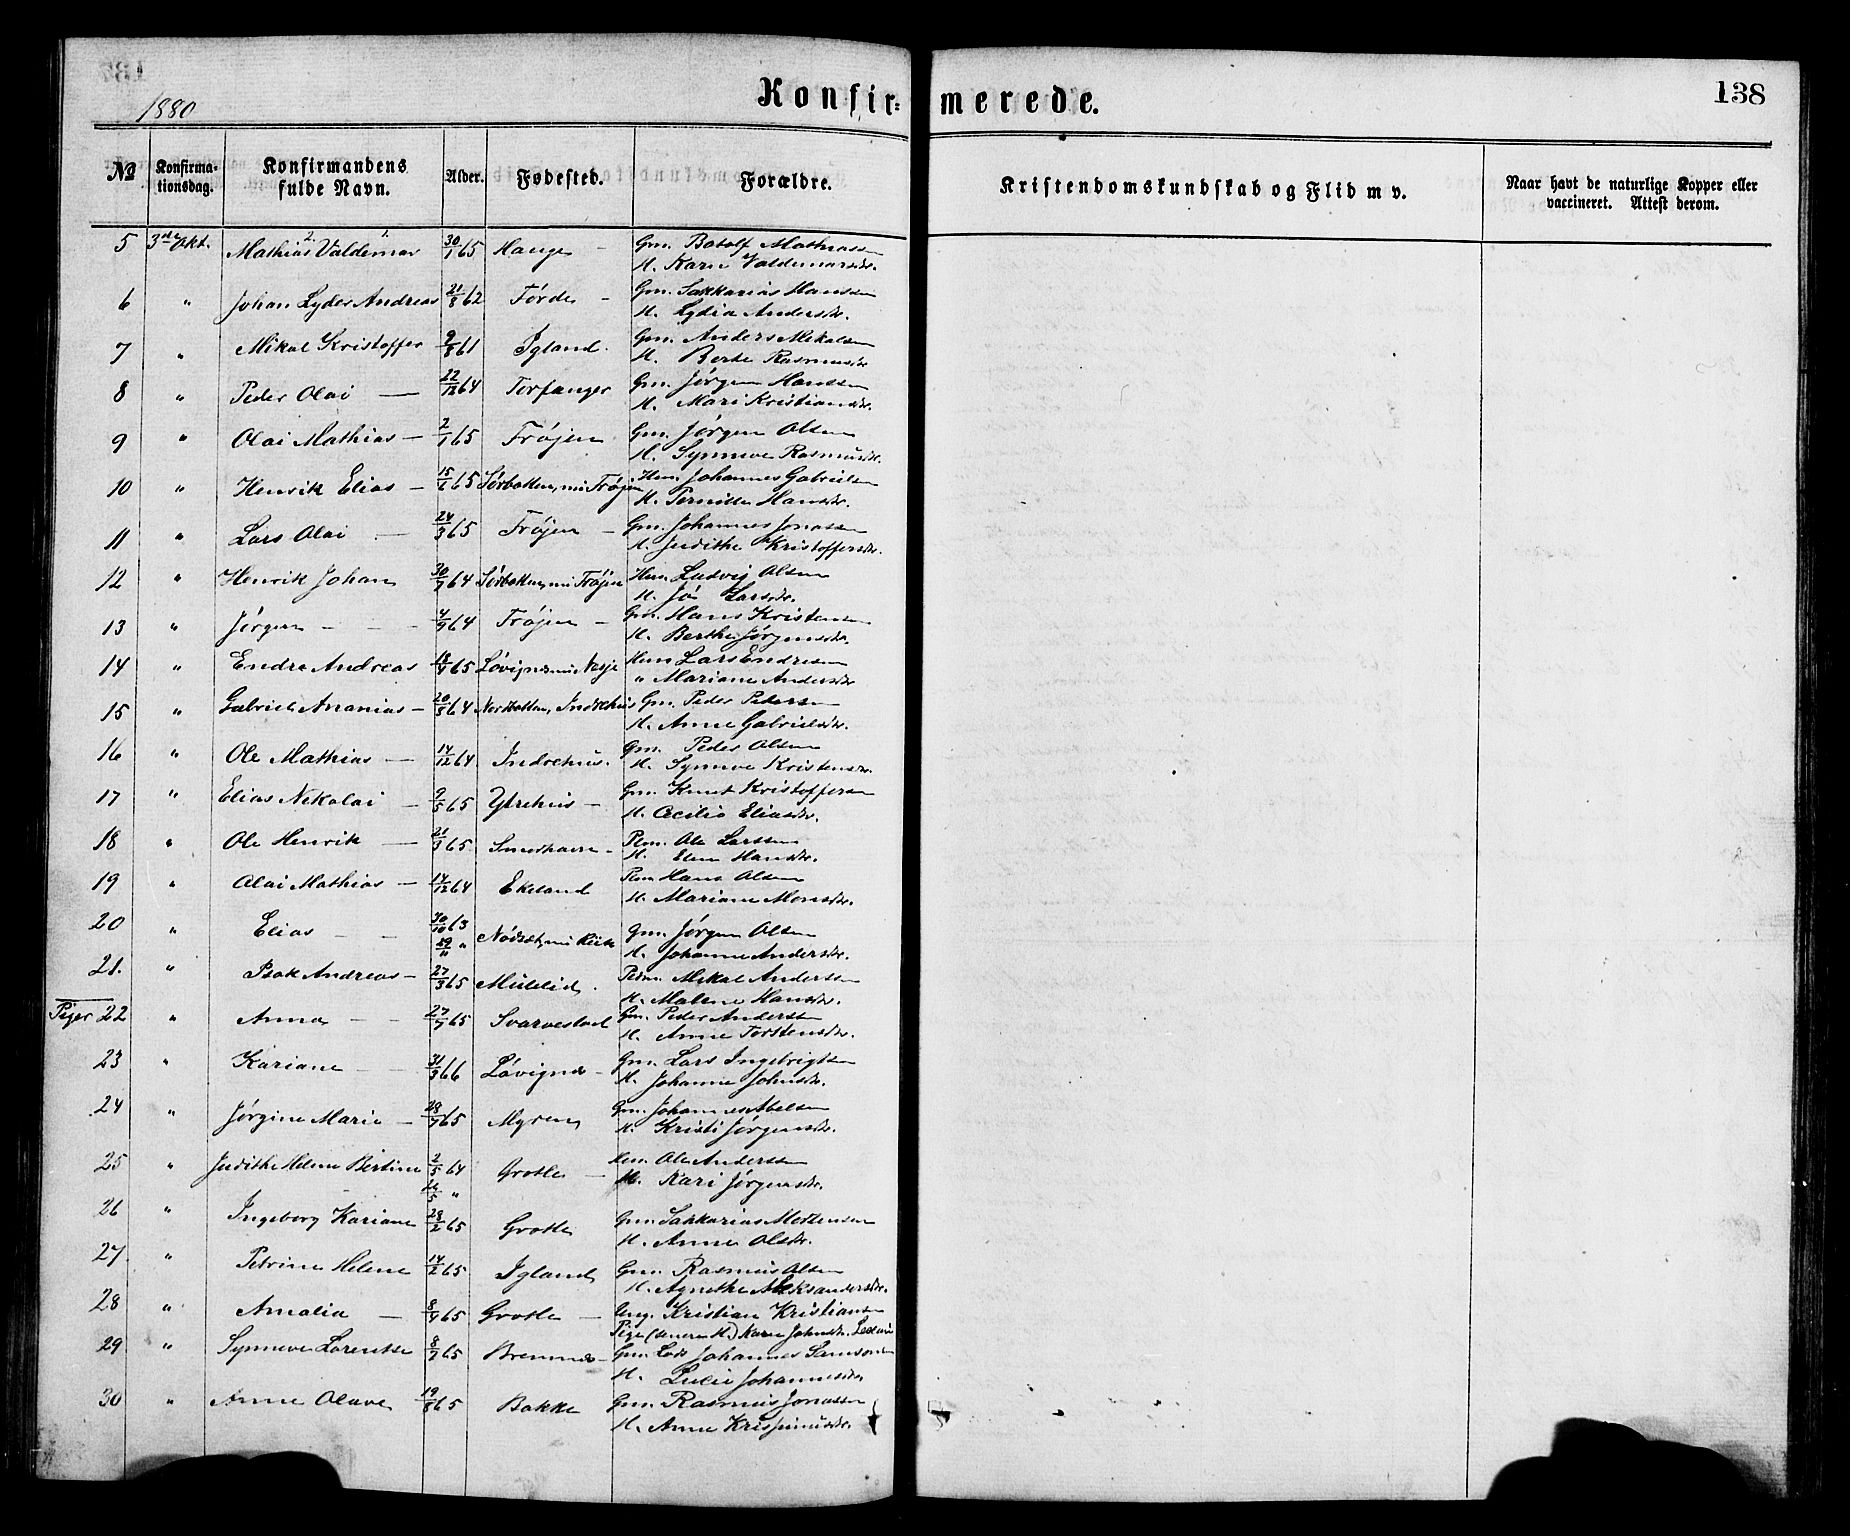 1880
Konfir- merede.
138
№ Konfirmationsdag. Konfirmandens fulde Navn. Alder. Fødested. Forældre. Kristendomskundskab og Flid m v. Naar havt de naturlige Kopper eller vaccineret. Attest derom.
5 3die Okt. Mathias Valdemar 30/1 65 Hauge Gm. Botolf Mathiassen
H. Karen Valdemarsdr.
6 " Johan Lyder Andreas 21/8 62 Førde Gm. Sakkarias Hanssen
H. Lydia Andersdr.
7 " Mikal Kristoffer 9/8 61 Igland Gm. Anders Mikalsen
H. Berte Rasmusdr.
8 " Peder Olai 22/12 64 Torfanger Gm. Jørgen Hanssen
H. Mari Kristiansdr.
9 " Olai Mathias 2/1 65 Frøjen Gm. Jørgen Olsen
H. Synneve Rasmusdr.
10 " Henrik Elias 15/6 65 Sørbotten, nu Frøjen Hm. Johannes Gabrielsen
H. Pernille Hansdr.
11 " Lars Olai 24/3 65 Frøjen Gm. Johannes Jonassen
H. Judithe Kristoffersdr.
12 " Henrik Johan 30/7 64 Sørbotten, nu Frøjen Hm. Ludvig Olsen
H. Larsdr.
13 " Jørgen 4/9 64 Frøjen Gm. Hans Kristensen
H. Berthe Jørgensdr.
14 " Endre Andreas 18/4 65 Løvignes nu Nesje Hm Lars Endresen
" Mariane Andersdr.
15 " Gabriel Ananias 20/3 64 Nordbotten, Indrehus Gm. Peder Pedersen
H. Anne Gabrielsdr.
16 " Ole Mathias 14/12 64 Indrehus. Gm. Peder Olsen
H. Synneve Kristensdr.
17 " Elias Nikolai 9/5 65 Ytrehus Gm. Knut Kristoffersen
H. Cecilia Eliasdr.
18 " Ole Henrik 21/3 65 Smørhavn Plm. Ole Larssen
H. Elen Hansdr.
19 " Olai Mathias 14/12 64 Ekeland Plm Hans Olsen
H. Mariane Monsdr.
20 " Elias 30/10 63 Gm. Jørgen Olsen
H. Johanne Andersdr.
21. " Isak Andreas 27/3 65 Mulelid. Mikal Anderssen
H. Malene Hansdr.
Piger 22 " Anna 27/7 65 Svarvestad Gm. Peder Anderssen
H. Anne Torstensdr.
23 " Kariane 31/3 66 Løvignes Gm. Lars Ingebrigtsen
H. Johanne Johnsdr.
24 " Jørgine Marie 28/7 65 Myren Gm. Johannes Abelsen
H. Kristi Jørgensdr.
25 " Judithe Helene Bertine 2/5 64 Grotle Hm. Ole Anderssen
H. Kari Jørgensdr.
26 " Ingeborg Kariane 28/2 65 Grotle Gm. Sakkarias Mortensen
H. Anne Olsdr.
27 " Petrine Helene 14/2 65 Igland Gm. Rasmus Olsen
H. Agnethe Aleksandersdr.
28 " Amalia 8/4 65 Grotle Ung. Kristian Kristiansen
Pige (senere H.) Karen Johnsdr.
29 " Synneve Lorentse 8/7 65 Bremnes Gm. Lods Johannes Samsonsen
H. Lucie Johannesdr.
30 " Anne Olave 19/8 65 Bakke Gm. Rasmus Jonassen
H. Anne Krispinusdr.